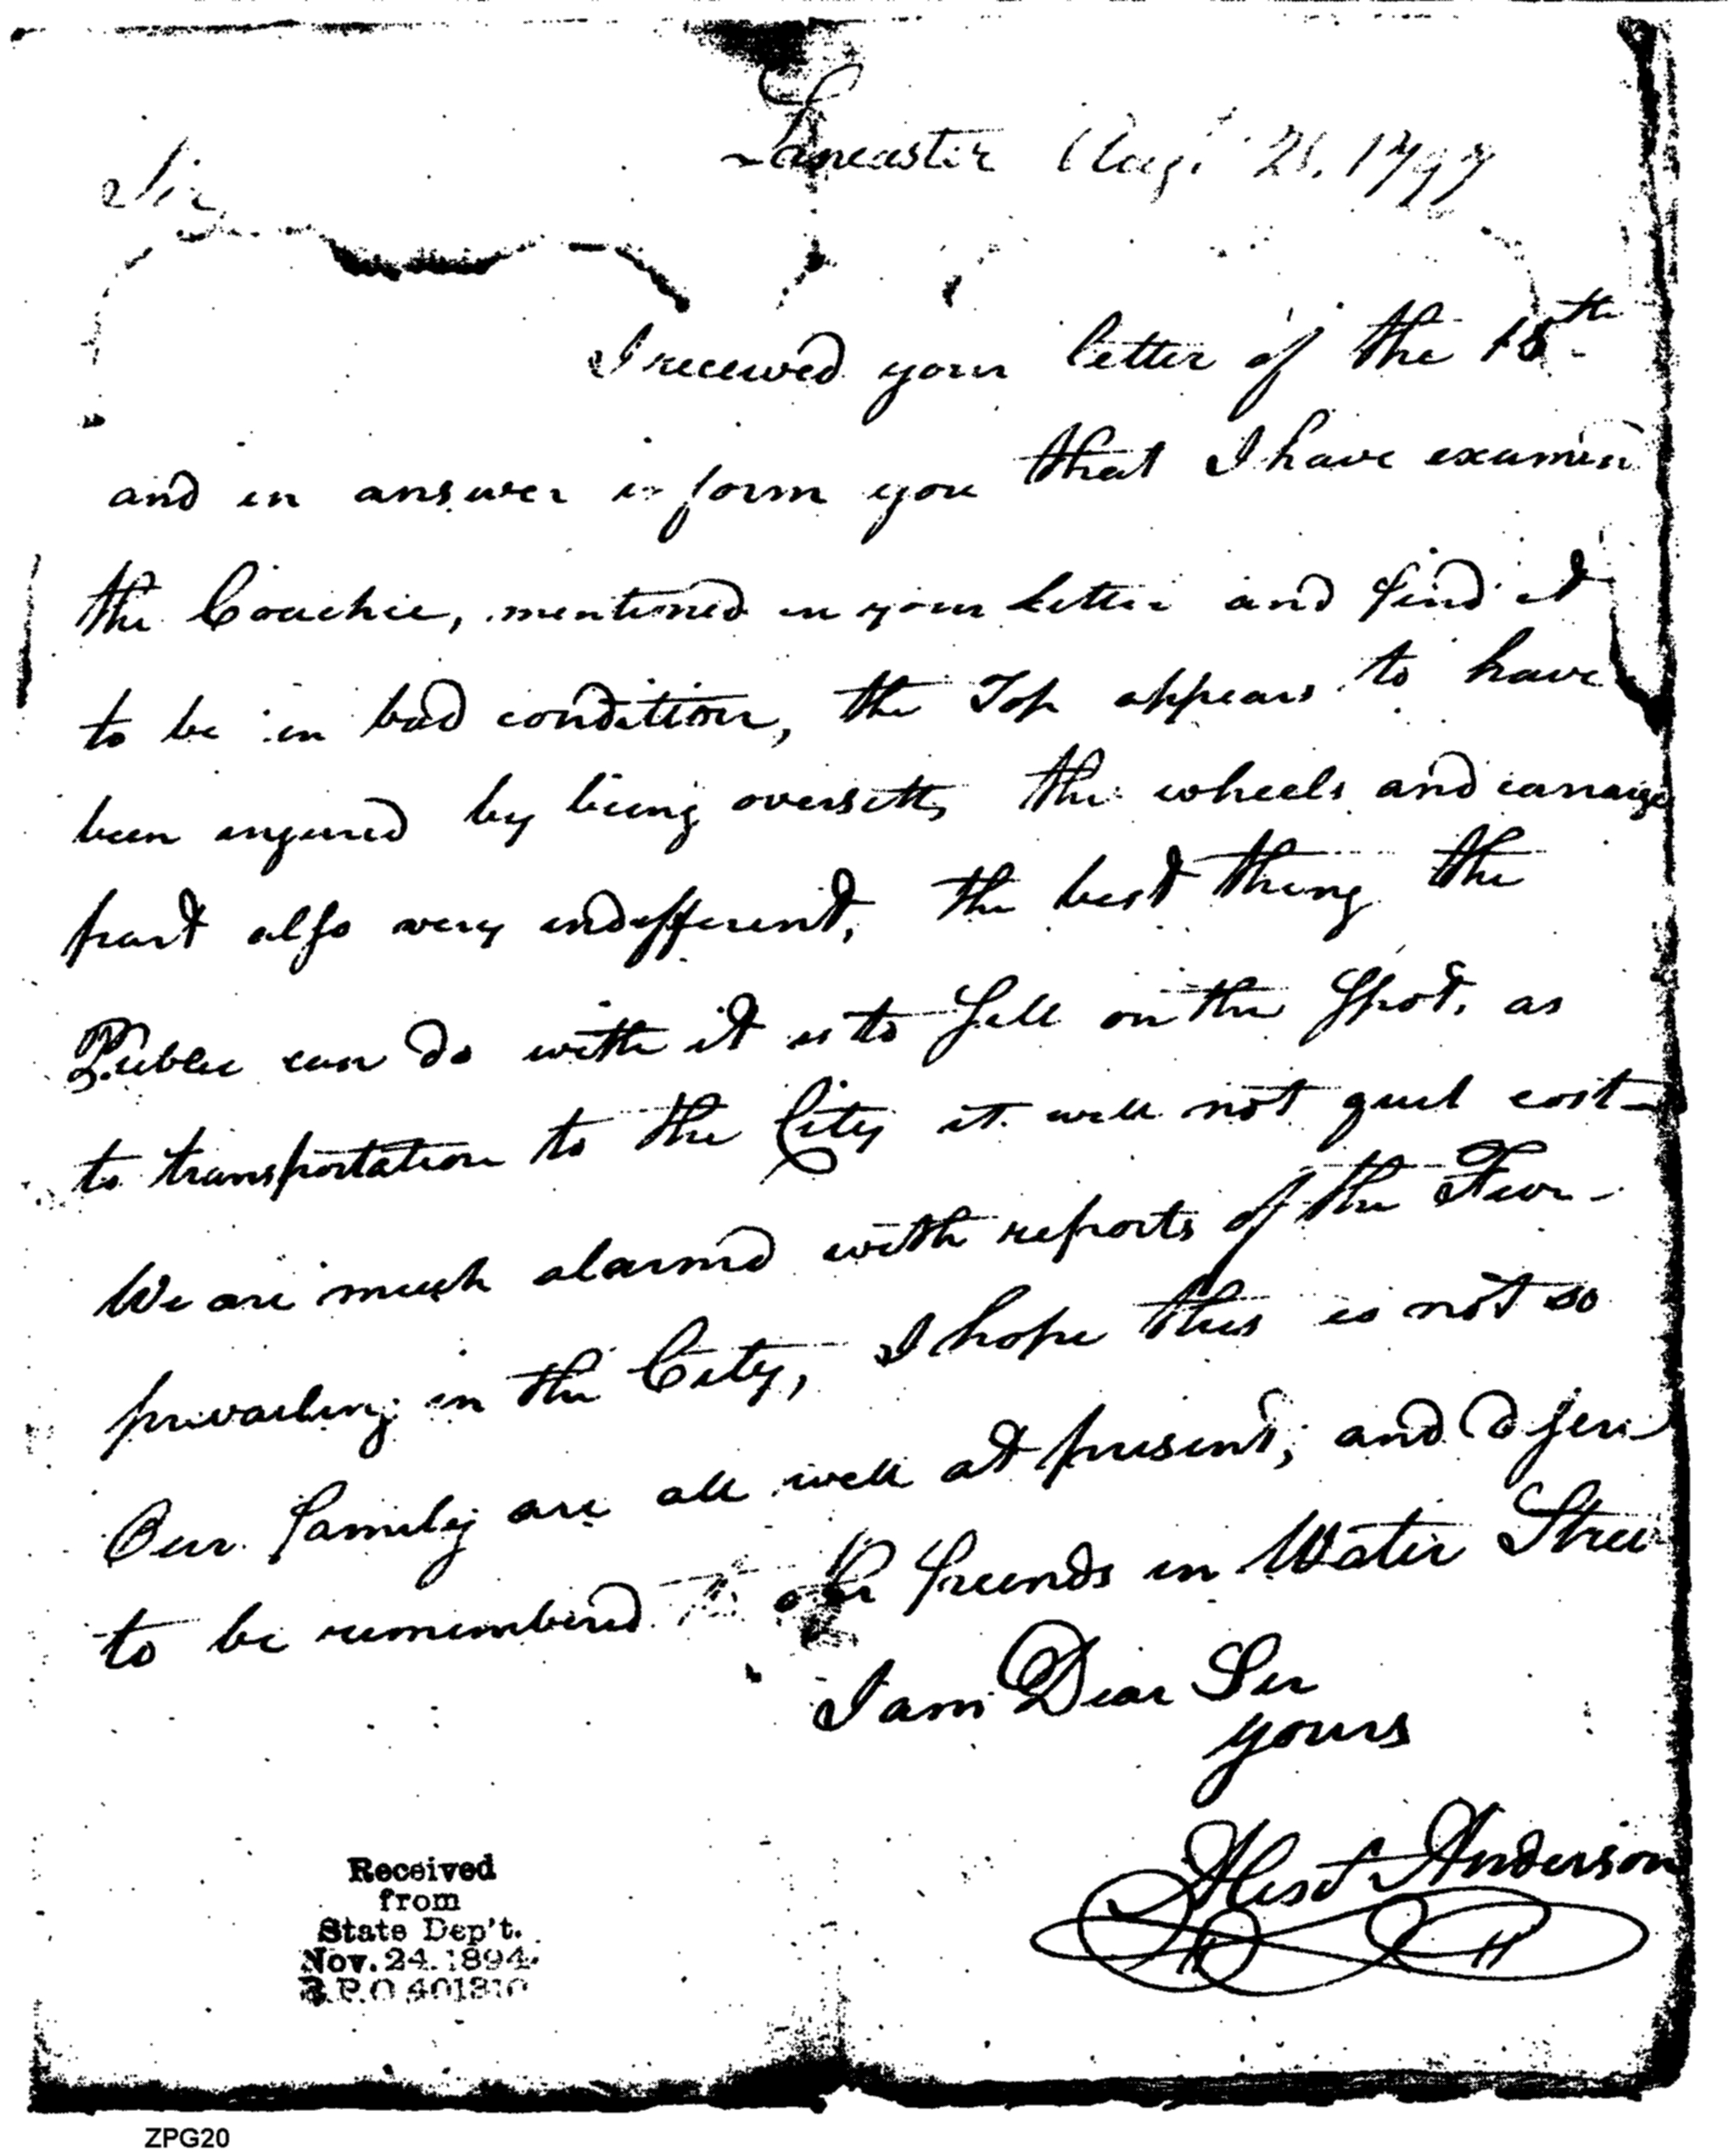 Lancaster Augt 21. 1797
Sir
I received your letter of the 18th
and in answer inform you that I have examin
the Coachie, mentioned in your Letter and find it
to be in bad condition, the Top appears to have
been injured by being oversett, the wheels and carraige
part also very indifferent, the best thing the
Public can do with it is to Sell on the Spot, as
to transportation to the City it will not quit cost
We are much alarmd with reports of the Fever
prevailing in the City, I hope this is not so
Our family are all well at present, and desire
to be remembered to our friends in Water Stree
I am Dear Sir
yours
Alexr Anderson
Received
from
State Dep't.
Nov. 24. 1894.
R.P.O 401310
ZPG20